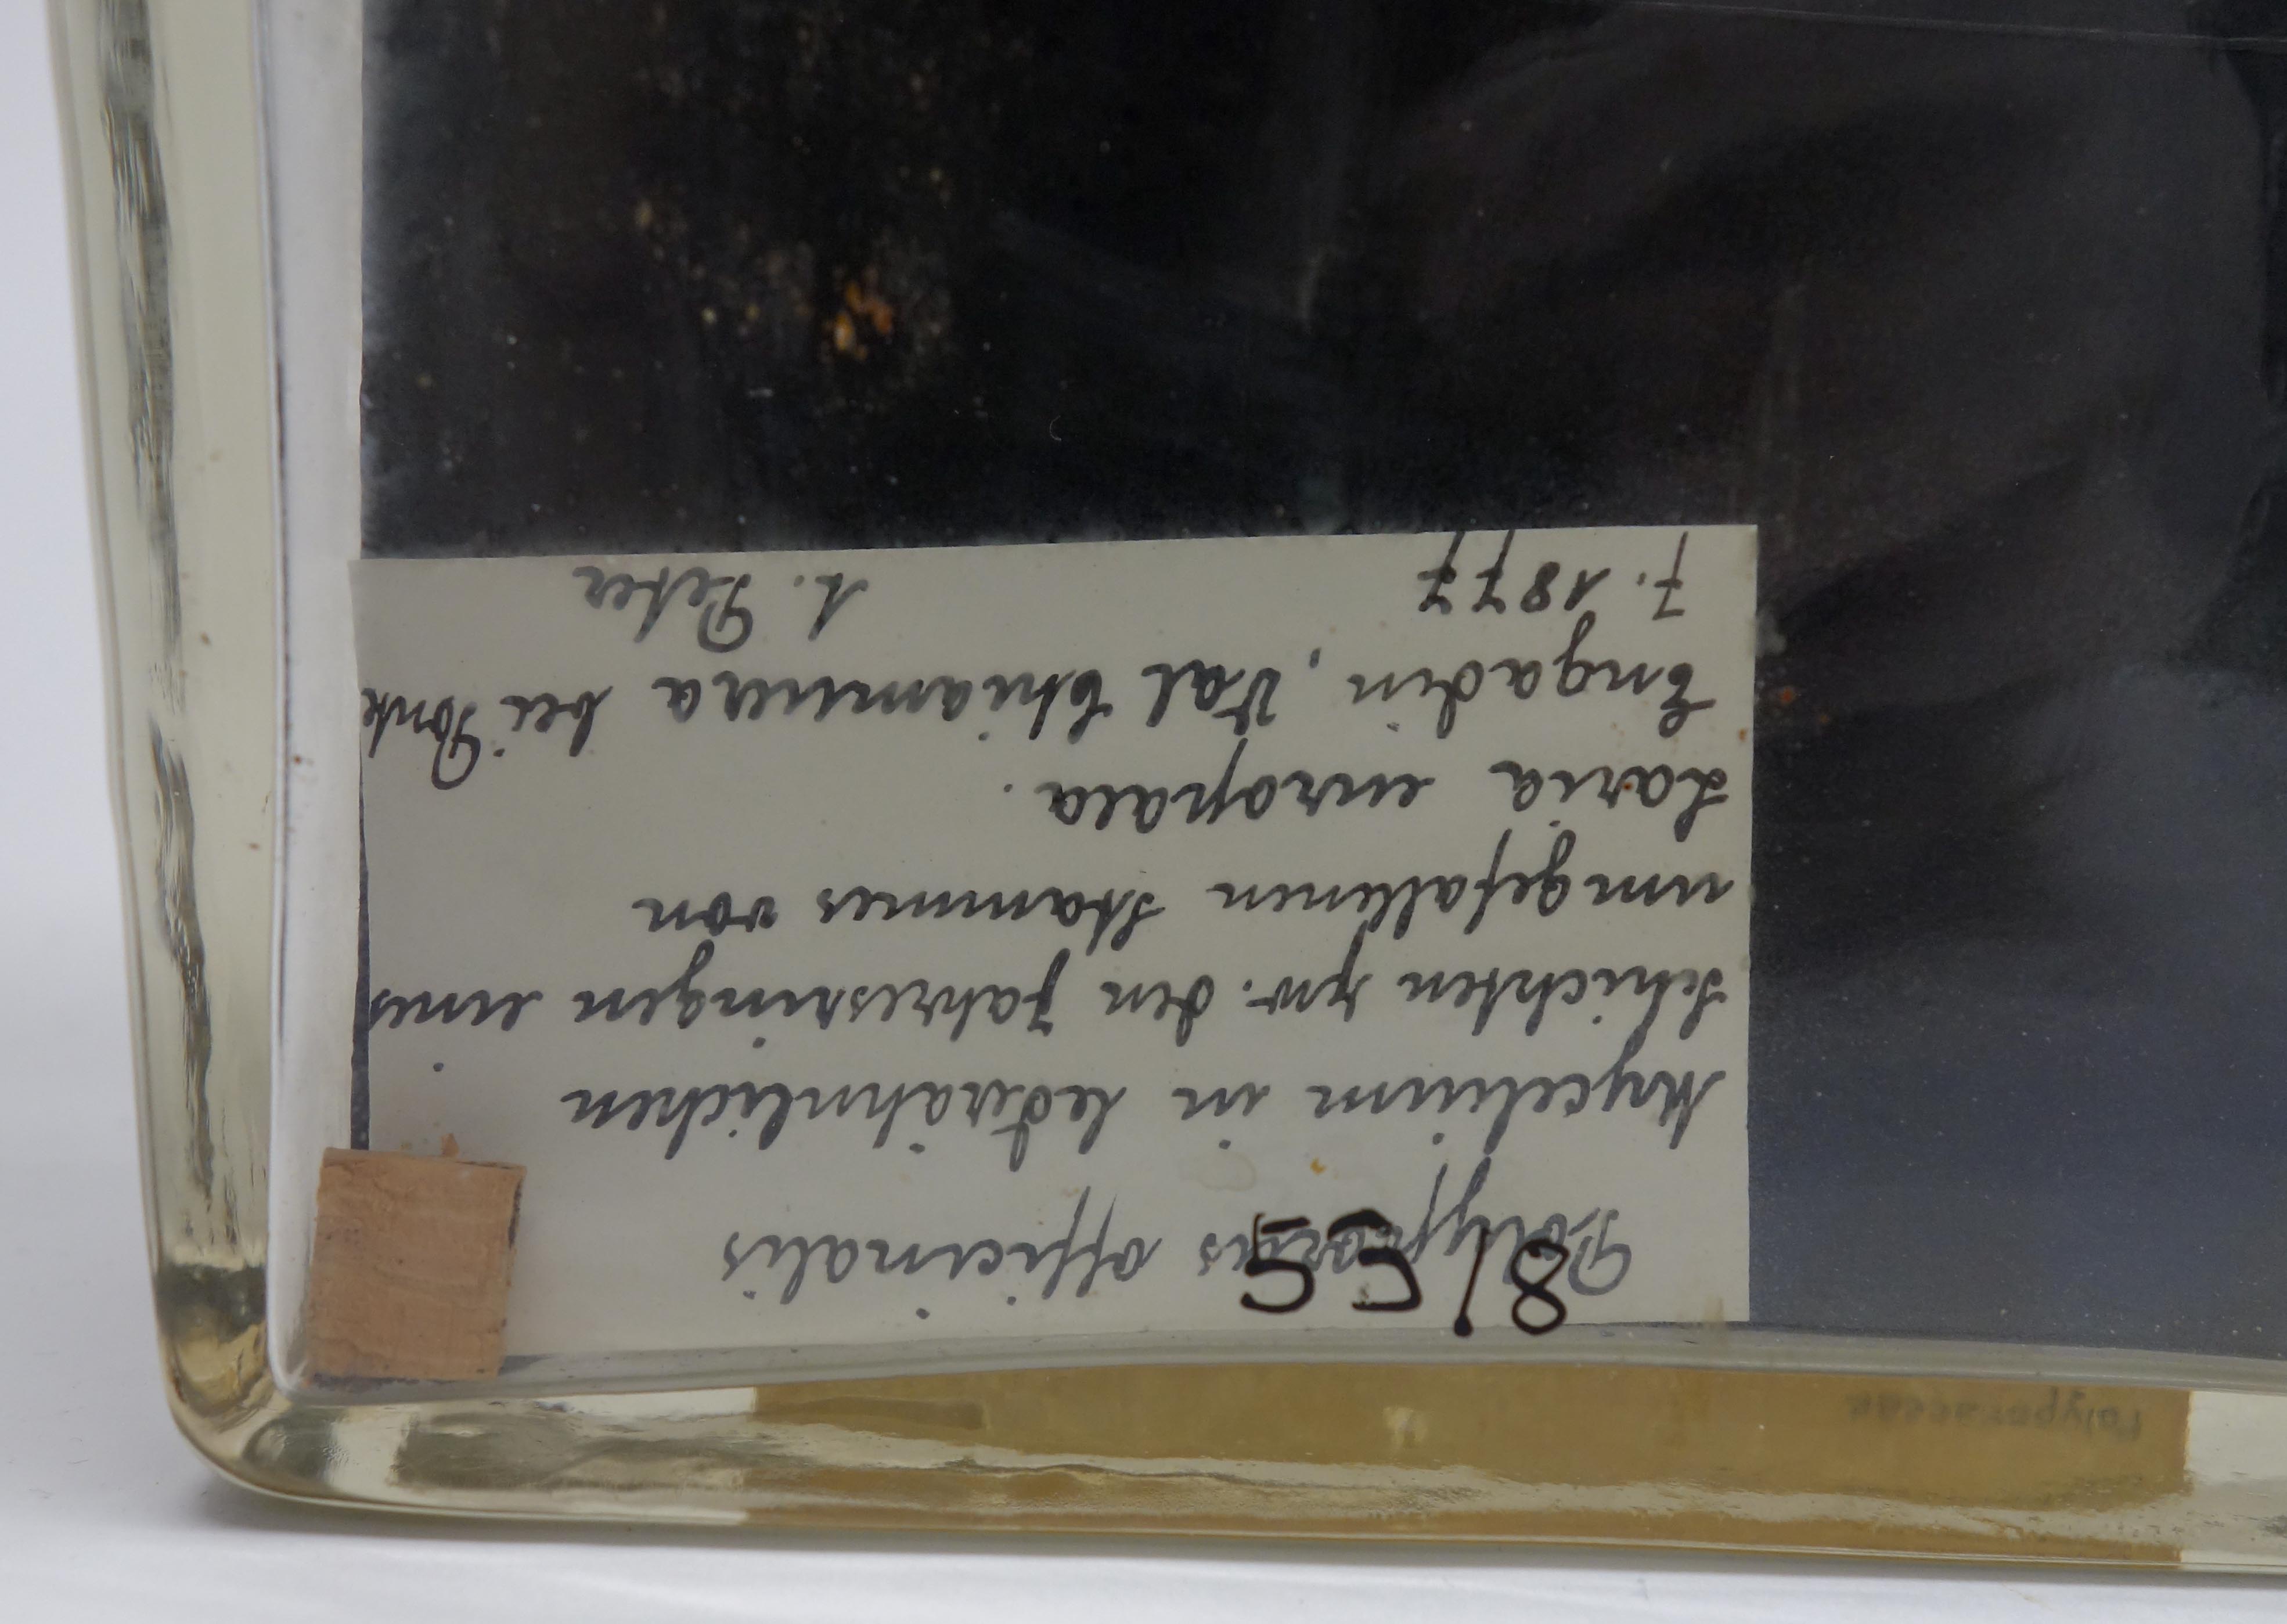 Polyporus officinalis
Mycelium in lederähnlichen
Schichten zw. den Jahresringen eines
umgefallenen Stammes von
Larix europaea.
Engadin, Val Chiamuera bei Ponte
7. 1877 l. Peter
55/8
Polyporaceae